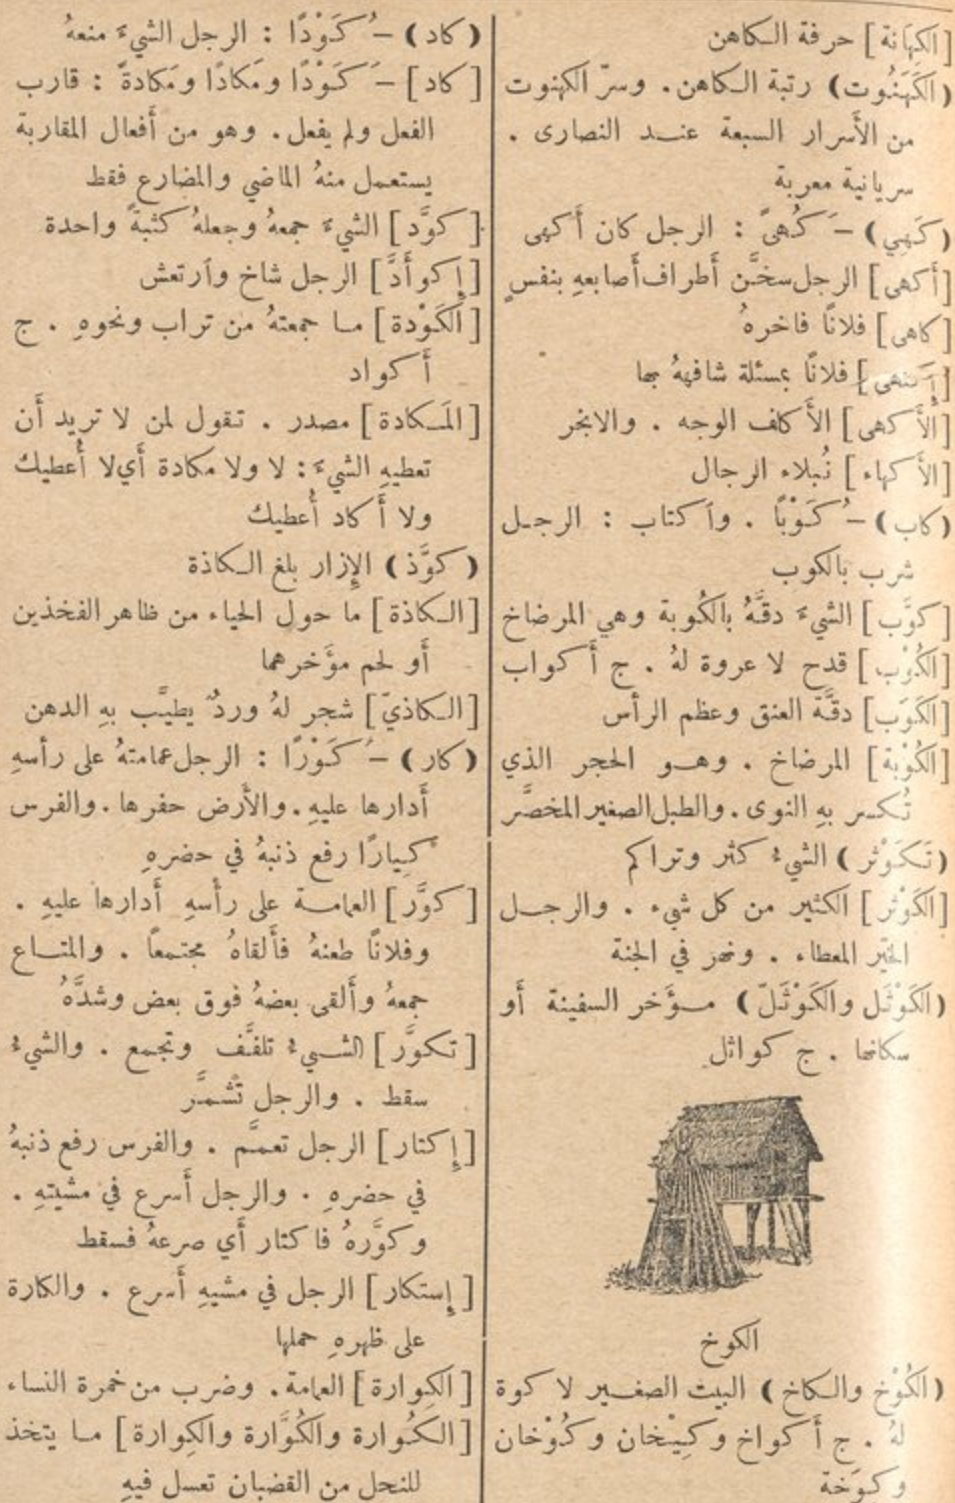 [الكِهَانة] حرفة الكاهن
(الكَهَنُوت) رتبة الكاهن. وسرّ الكهنوت
من الأَسرار السبعة عند النصارى .
سريانية معربة
(كَهِي) -َ كَهًى : الرجل كان أَكهى
[أَكهى] الرجل سخَّن أَطراف أَصابعهِ بنفسٍ
[كاهى] فلانًا فاخرهُ
[إِكتهى] فلانًا بمسئلة شافههُ بها
[الأَكهى] الأَكلف الوجه . والابخر
[الأَكهاء] نُبلاء الرجال
(كاب) -ُ كَوْبًا . وٱكتاب : الرجل
شرب بالكوب
[كوَّب] الشيءَ دقَّهُ بالكُوبة وهي المرضاخ
[الكُوْب] قدح لا عروة لهُ . ج أَكواب
[الكَوَب] دقَّة العنق وعظم الرأس
[الكُوْبة] المرضاخ . وهو الحجر الذي
تُكسر بهِ النوى . والطبل الصغير المخصَّر
(تَكَوْثر) الشيءُ كثر وتراكم
[الكَوْثر] الكثير من كل شيء . والرجل
الخيّر المعطاء . ونهر في الجنة
(الكَوْثَل والكَوْثَلّ) مؤَخر السفينة أَو
سكانها . ج كواثل
الكوخ
(الكُوْخ والكاخ) البيت الصغير لا كوة
لهُ . ج أَكواخ وكِيْخان وكُوْخان
وكِوَخة
(كاد) -ُ كَوْدًا : الرجل الشيءَ منعهُ
[كاد] -َ كَوْدًا ومَكادًا ومَكادةً : قارب
الفعل ولم يفعل. وهو من أَفعال المقاربة
يستعمل منهُ الماضي والمضارع فقط
[كوَّد] الشيءَ جمعهُ وجعلهُ كثبةً واحدة
[إِكوأَدَّ] الرجل شاخ وٱرتعش
[الكَوْدة] ما جمعتهُ من تراب ونحوهِ . ج
أَكواد
[المَكادة] مصدر . تقول لمن لا تريد أَن
تعطيهِ الشيءَ : لا ولا مكادة أَي لا أُعطيك
ولا أَكاد أُعطيك
(كوَّذ) الإِزار بلغ الكاذة
[الكاذة] ما حول الحياء من ظاهر الفخذين
أَو لحم مؤَخرهما
[الكاذيّ] شجر لهُ وردٌ يطيَّب بهِ الدهن
(كار) -ُ كَوْرًا : الرجل عمامتهُ على رأسهِ
أَدارها عليهِ . والأَرض حفرها . والفرس
كِيارًا رفع ذنبهُ في حضرهِ
[كوَّر] العمامة على رأْسهِ أَدارها عليهِ .
وفلانًا طعنهُ فأَلقاهُ مجتمعًا . والمتاع
جمعهُ وأَلقى بعضهُ فوق بعض وشدَّهُ
[تكوَّر] الشيءُ تلفَّف وتجمع . والشيءُ
سقط . والرجل تشمَّر
[إِكتار] الرجل تعمَّم . والفرس رفع ذنبهُ
في حضرهِ . والرجل أَسرع في مشيتهِ .
وكوَّرهُ فاكتار أَي صرعهُ فسقط
[إِستكار] الرجل في مشيهِ أَسرع . والكارة
على ظهرهِ حملها
[الكِوارة] العمامة. وضرب من خمرة النساء
[الكُوارة والكُوَّارة والكِوارة] ما يتخذ
للنحل من القضبان تعسل فيهِ